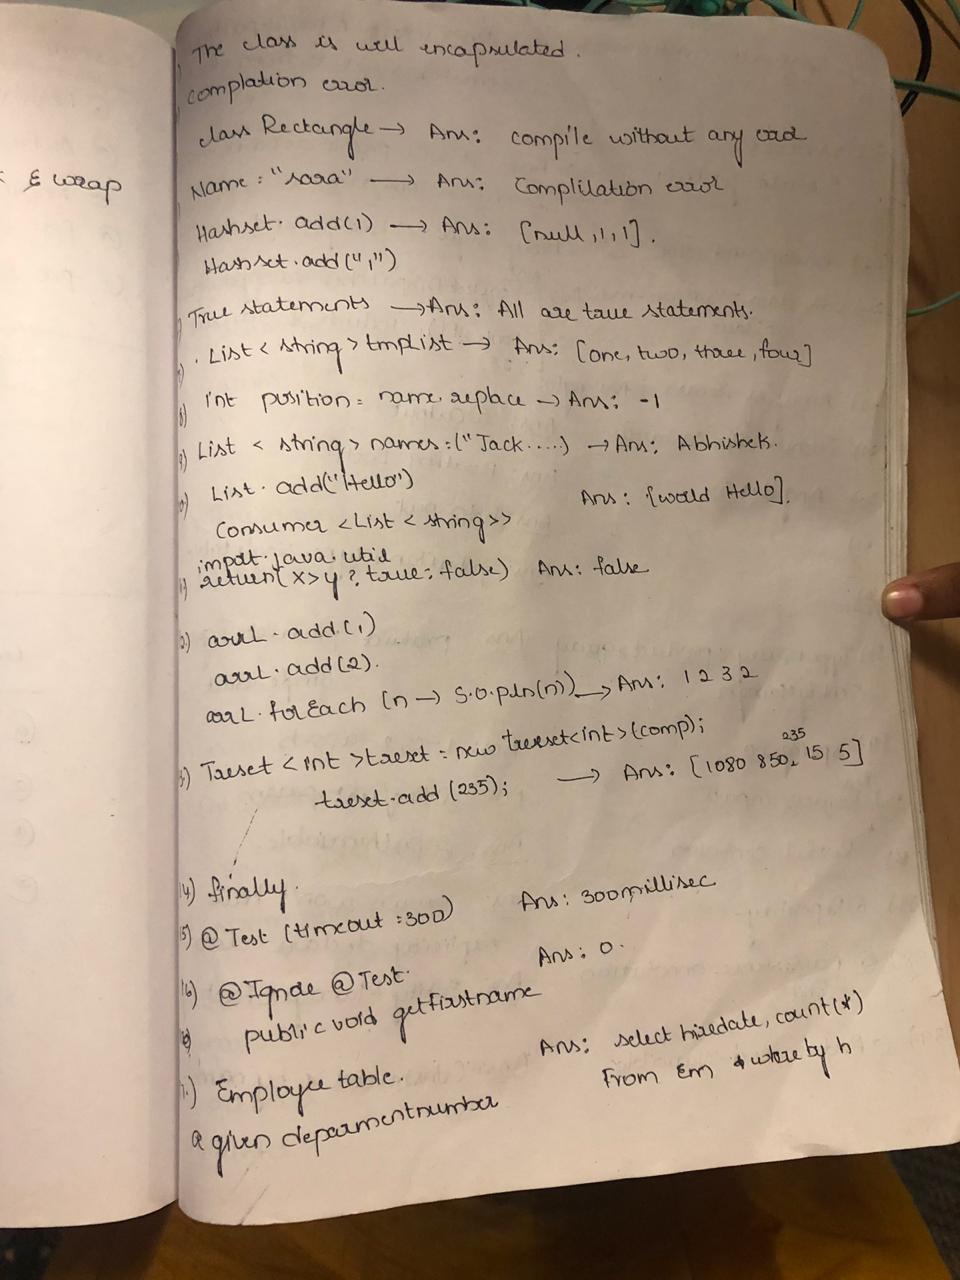 & wrap
The class is well encapsulated.
complation error.
class Rectangle → Ans: compile without any
Name: "sara" → Ans: Complilation error
Hashset. add(1) → Ans: [null,1,1].
Hashset.add("1")
True statements → Ans: All are true statements.
. List < string > tmplist → Ans: [one, two, three, four]
8) int position = name.replace → Ans: -1
9) List < string > names:("Jack....) → Ans: Abhishek.
0) List. add("Hello") Ans: [world Hello].
Consumer <List < string>>
import.java.util
1) return(x>y?, true: false) Ans: false
2) arrL. add(1)
arrL. add(2).
arrL. forEach (n → S.O.pln(n)) → Ans: 1 2 3 2
3) Treset <int >treset = new treeset<int>(comp);
treset.add (235); → Ans: [1080 850, 235 15 5]
14) finally.
15) @ Test (timeout =300) Ans: 300millisec
16) @Ignore @Test. Ans: 0.
public void getfirstname
1.) Employee table. Ans: select hiredate, count(*)
a given deparmentnumber From Em where by h